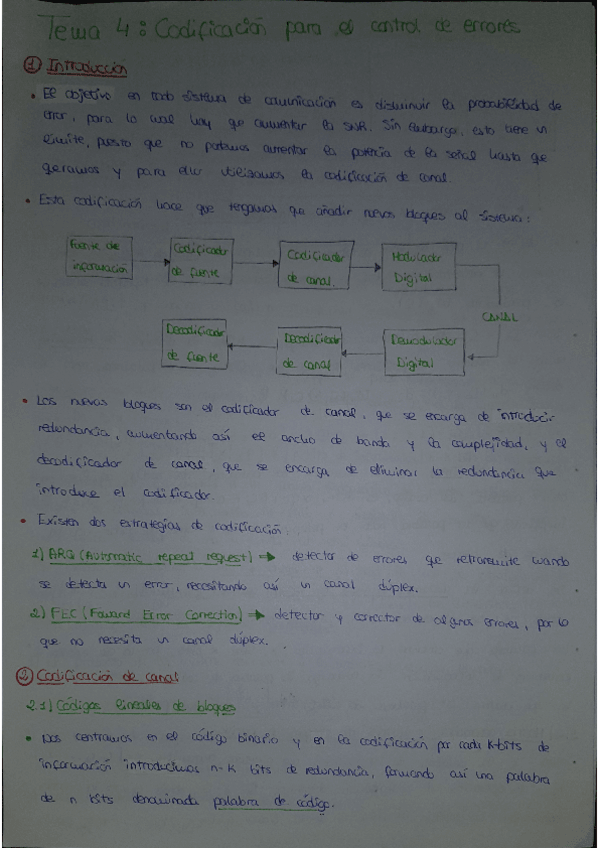 Tema 4: Codificación para el control de errores
1 Introducción
• El objetivo en todo sistema de comunicación es disminuir la probabilidad de
error, para lo cual hay que aumentar la SNR. Sin embargo, esto tiene un
límite, puesto que no podemos aumentar la potencia de la señal hasta que
queramos y para ello utilizamos la codificación de canal.
• Esta codificación hace que tengamos que añadir nuevos bloques al sistema:
Fuente de
información
Codificador
de fuente
Codificador
de canal.
Modulador
Digital
CANAL
Decodificador
de fuente
Decodificador
de canal
Demodulador
Digital
• Los nuevos bloques son el codificador de canal, que se encarga de introducir
redundancia, aumentando así el ancho de banda y la complejidad, y el
decodificador de canal, que se encarga de eliminar la redundancia que
introduce el codificador.
• Existen dos estrategias de codificación.
1) ARQ (Automatic repeat request) → detector de errores que retransmite cuando
se detecta un error, necesitando así un canal dúplex.
2) FEC (Foward Error Correction) → detector y corrector de algunos errores, por lo
que no necesita un canal dúplex.
2 Codificación de canal
2.1) Códigos lineales de bloques
• Nos centramos en el código binario y en la codificación por cada k-bits de
información introducimos n-k bits de redundancia, formando así una palabra
de n bits denominada palabra de código.